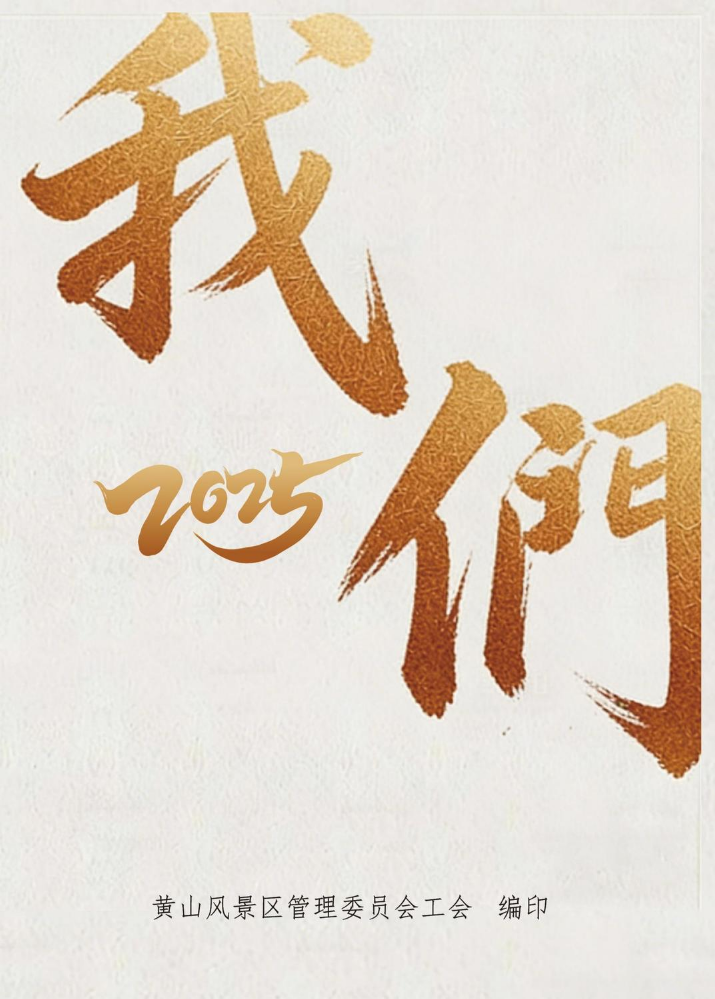 我
們
2025
黄山风景区管理委员会工会 编印